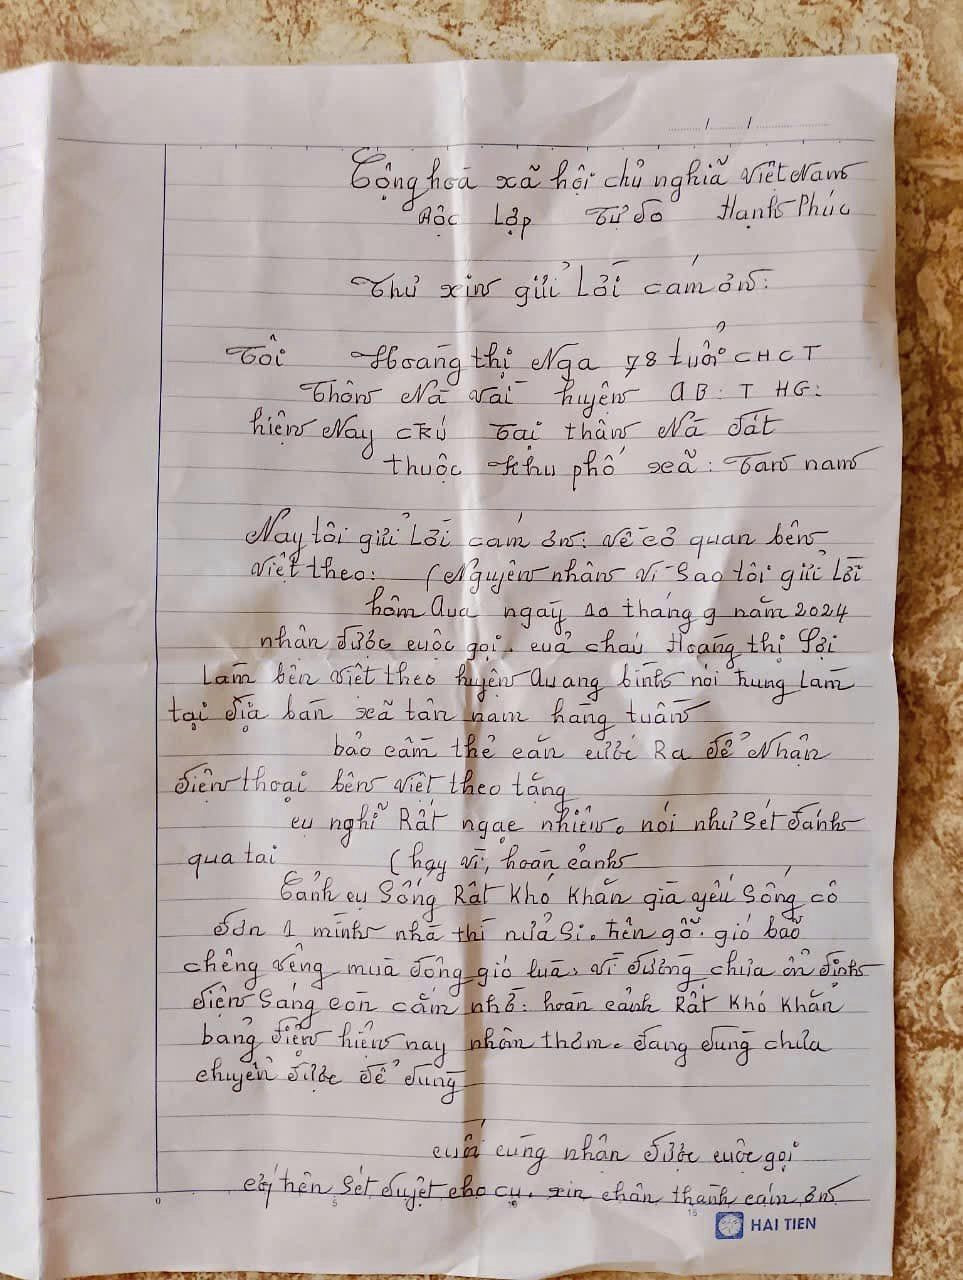 Cộng hoà xã hội chủ nghiã Việt Nam
Độc Lập Tự do Hạnh Phúc
Thư xin gửi Lời cám ơn:
Tôi Hoàng thị Nga 78 tuổi CHCT
Thôn Nà Vài huyện QB: T HG:
hiện Nay cRú Tại thôn Nà đát
thuộc khu phố xẽã: Tan nam
Nay tôi gửi Lời cám ơn: về cơ quan bên
Việt theo: (Nguyên nhân vì Sao tôi gửi Lời
hôm Qua ngaỳ 10 tháng 9 năm 2024
nhân được cuộc gọi. cuả chaú Hoàng thị Lợi
Làm bên Việt theo huyện Quang bình nói trung Làm
tại địa bàn xã tân nam hàng tuần
bảo cầm thẻ căn cước Ra để Nhận
điện thoại bên Việt theo tặng
cụ nghĩ Rất ngạc nhiên. nói như Sét đánh
qua tai (hay vì, hoàn cảnh
Cảnh cụ Sống Rất Khó Khăn già yếu Sống cô
đơn 1 mình nhà thì nửa Si. trên gỗ. gió baõ
chênh vênh muà đông gió luà. Vì đường chưa ổn định
điện Sáng còn cắm nhờ: hoàn cảnh Rất Khó Khăn
bảng điện hiện nay nhôn thơm. đang dùng chưa
chuyển được để dùng
cuối cùng nhận được cuộc gọi
có tên Sét duyệt cho cụ. xin chân thành cám ơn
0 5 10 15
HAI TIEN